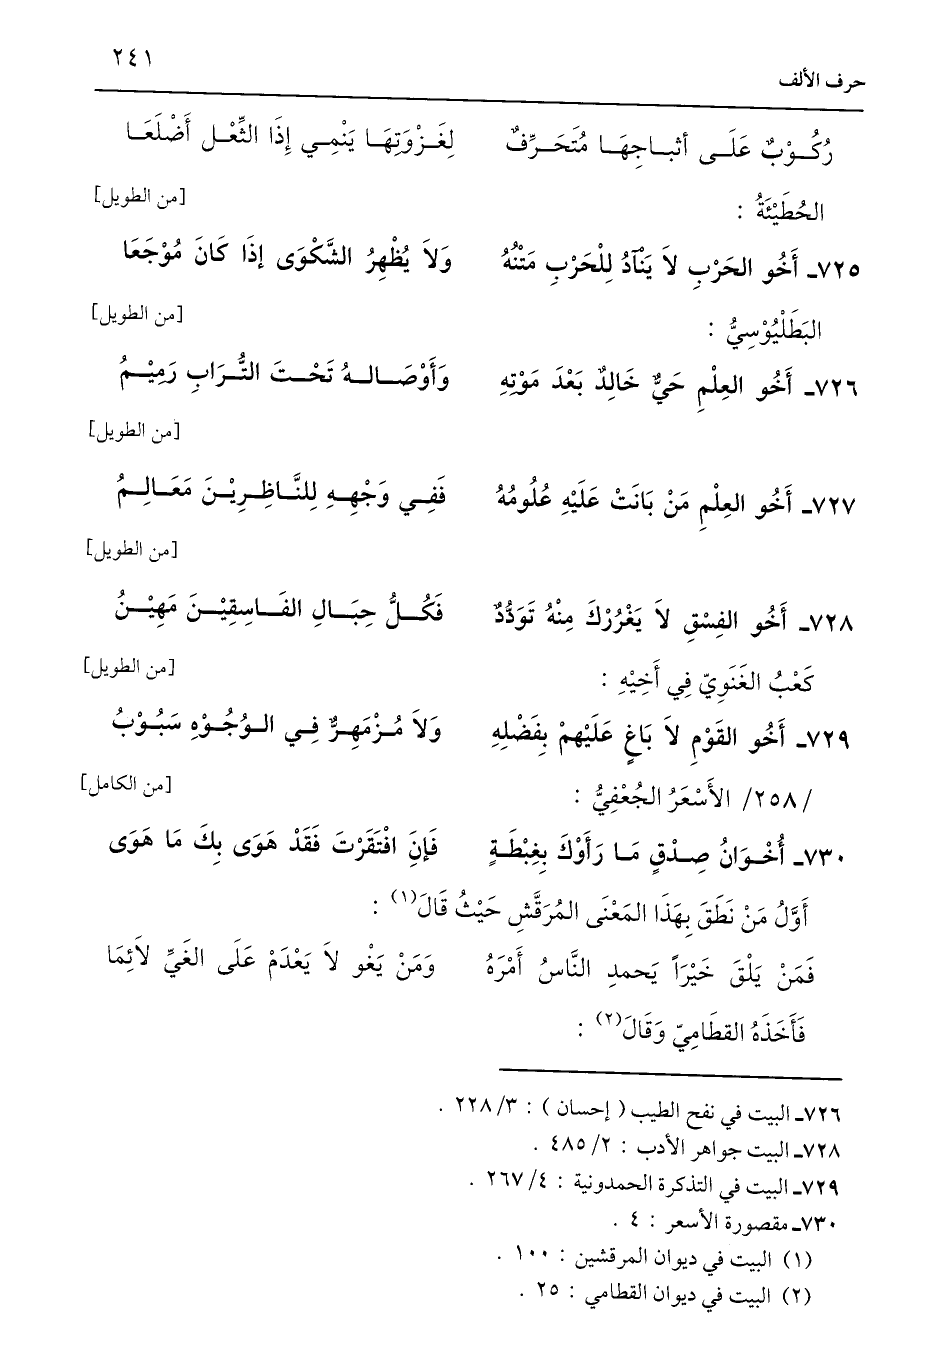 ٢٤١
حرف الألف
رُكُـوْبٌ عَلَـى أثبـاجِهَـا مُتَحَـرِّفٌ لِغَـزْوَتِهَـا يَنْمِـي إِذَا الثِّعْـل أَضْلَعَـا
[من الطويل]
الحُطَيْئَةُ :
٧٢٥ـ أَخُو الحَرْبِ لاَ يَنْآدُ لِلْحَرْبِ مَتْنُهُ وَلاَ يُظْهِرُ الشَّكْوَى إِذَا كَانَ مُوْجَعَا
[من الطويل]
البَطَلْيُوْسِيُّ :
٧٢٦ـ أَخُو العِلْمِ حَيٌّ خَالِدٌ بَعْدَ مَوْتِهِ وَأَوْصَـالـهُ تَحْـتَ التُّـرَابِ رَمِيْـمُ
[من الطويل]
٧٢٧ـ أَخُو العِلْمِ مَنْ بَانَتْ عَلَيْهِ عُلُومُهُ فَفِـي وَجْهِـهِ لِلنَّـاظِـرِيْـنَ مَعَـالِـمُ
[من الطويل]
٧٢٨ـ أَخُو الفِسْقِ لاَ يَغْرُرْكَ مِنْهُ تَوَدُّدٌ فَكُـلُّ حِبَـالِ الفَـاسِقِيْـنَ مَهِيْـنُ
[من الطويل]
كَعْبُ الغَنَوِيّ فِي أَخِيْهِ :
٧٢٩ـ أَخُو القَوْمِ لاَ بَاغٍ عَلَيْهِمْ بِفَضْلِهِ وَلاَ مُـزْمَهِـرٌّ فِـي الـوُجُـوْهِ سَبُـوْبُ
[من الكامل]
/٢٥٨/ الأَسْعَرُ الجُعْفِيُّ :
٧٣٠ـ أُخْـوَانُ صِـدْقٍ مَـا رَأَوْكَ بِغِبْطَـةٍ فَإنِ افْتَقَرْتَ فَقَدْ هَوَى بِكَ مَا هَوَى
أَوَّلُ مَنْ نَطَقَ بِهَذَا المَعْنَى المُرَقَّشِ حَيْثُ قَالَ(١) :
فَمَنْ يَلْقَ خَيْرَاً يَحمدِ النَّاسُ أَمْرَهُ وَمَنْ يَغْو لاَ يَعْدَمْ عَلَى الغَيِّ لاَئِمَا
فَأَخَذَهُ القطَامِيّ وَقَالَ(٢) :
٧٢٦ـ البيت في نفح الطيب ( إحسان ) : ٣/ ٢٢٨ .
٧٢٨ـ البيت جواهر الأدب : ٢/ ٤٨٥ .
٧٢٩ـ البيت في التذكرة الحمدونية : ٤/ ٢٦٧ .
٧٣٠ـ مقصورة الأسعر : ٤ .
(١) البيت في ديوان المرقشين : ١٠٠ .
(٢) البيت في ديوان القطامي : ٢٥ .